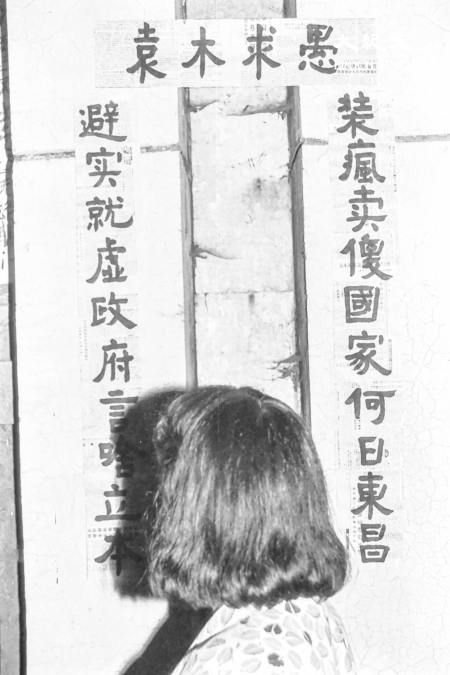 袁木求愚
装瘋卖傻國家何日東昌
避实就虚政府言啥立本